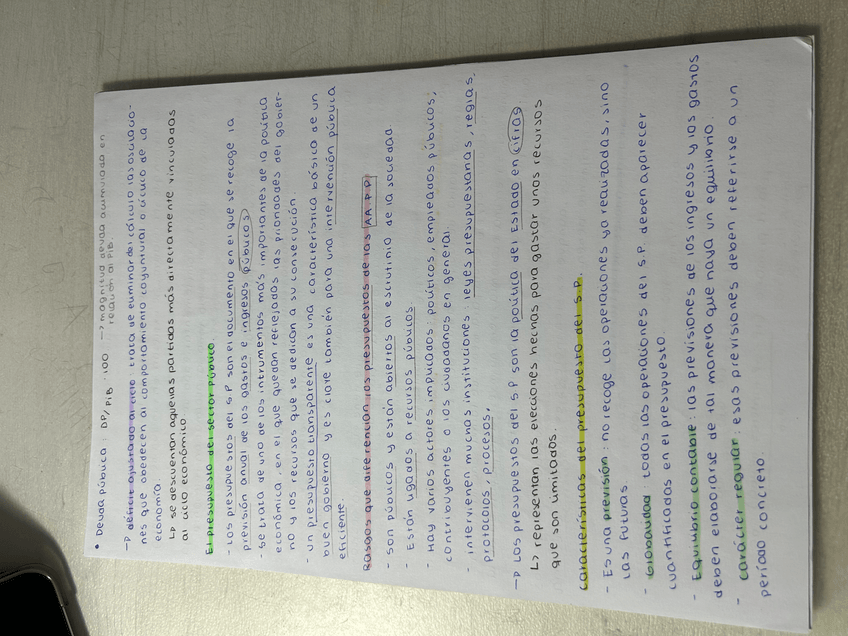 • Deuda pública : DP/PIB · 100 → magnitud deuda aumulada en
relación al PIB.
→ déficit ajustado al ciclo trata de eliminar del cálculo las oscilacio-
nes que obedecen al comportamiento coyuntural o cíclico de la
economía.
↳ se descuentan aquellas partidas más directamente vinculadas
al ciclo económico.
El presupuesto del sector público
- Los presupuestos del S.P son el documento en el que se recoge la
previsión anual de los gastos e ingresos públicos.
- Se trata de uno de los intrumentos más importantes de la política
económica, en el que quedan reflejados las prioridades del gobier-
no y los recursos que se dedican a su consecución.
- un presupuesto transparente es una característica básica de un
buen gobierno y es clave también para una intervención pública
eficiente.
Rasgos que diferencian los presupuestos de las AA.PP
- son públicos y están abiertos al escrutinio de la sociedad.
- Están ligados a recursos públicos.
- Hay varios actores implicados: políticos, empleados públicos,
contribuyentes o los ciudadanos en general
- intervienen muchas instituciones, leyes presupuestarias, reglas,
protocolos, procesos,
→ Los presupuestos del S.P son la política del Estado en cifras
↳ representan las elecciones hechas para gastar unos recursos
que son limitados.
características del presupuesto del S.P.
- Es una previsión: no recoge las operaciones ya realizadas, sino
las futuras.
- Globalidad: todas las operaciones del S.P. deben aparecer
cuantificadas en el presupuesto.
- Equilibrio contable: las previsiones de los ingresos y los gastos
deben elaborarse de tal manera que haya un equilibrio.
- carácter regular: esas previsiones deben referirse a un
período concreto.